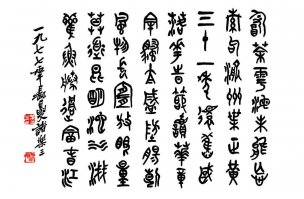 飲茶粵海未能忘
索句渝州葉正黃
三十一年還舊國
落花時節讀華章
牢騷太盛防腸斷
風物長宜放眼量
莫道昆明池水淺
觀魚勝過富春江
一九七七年 諸樂三